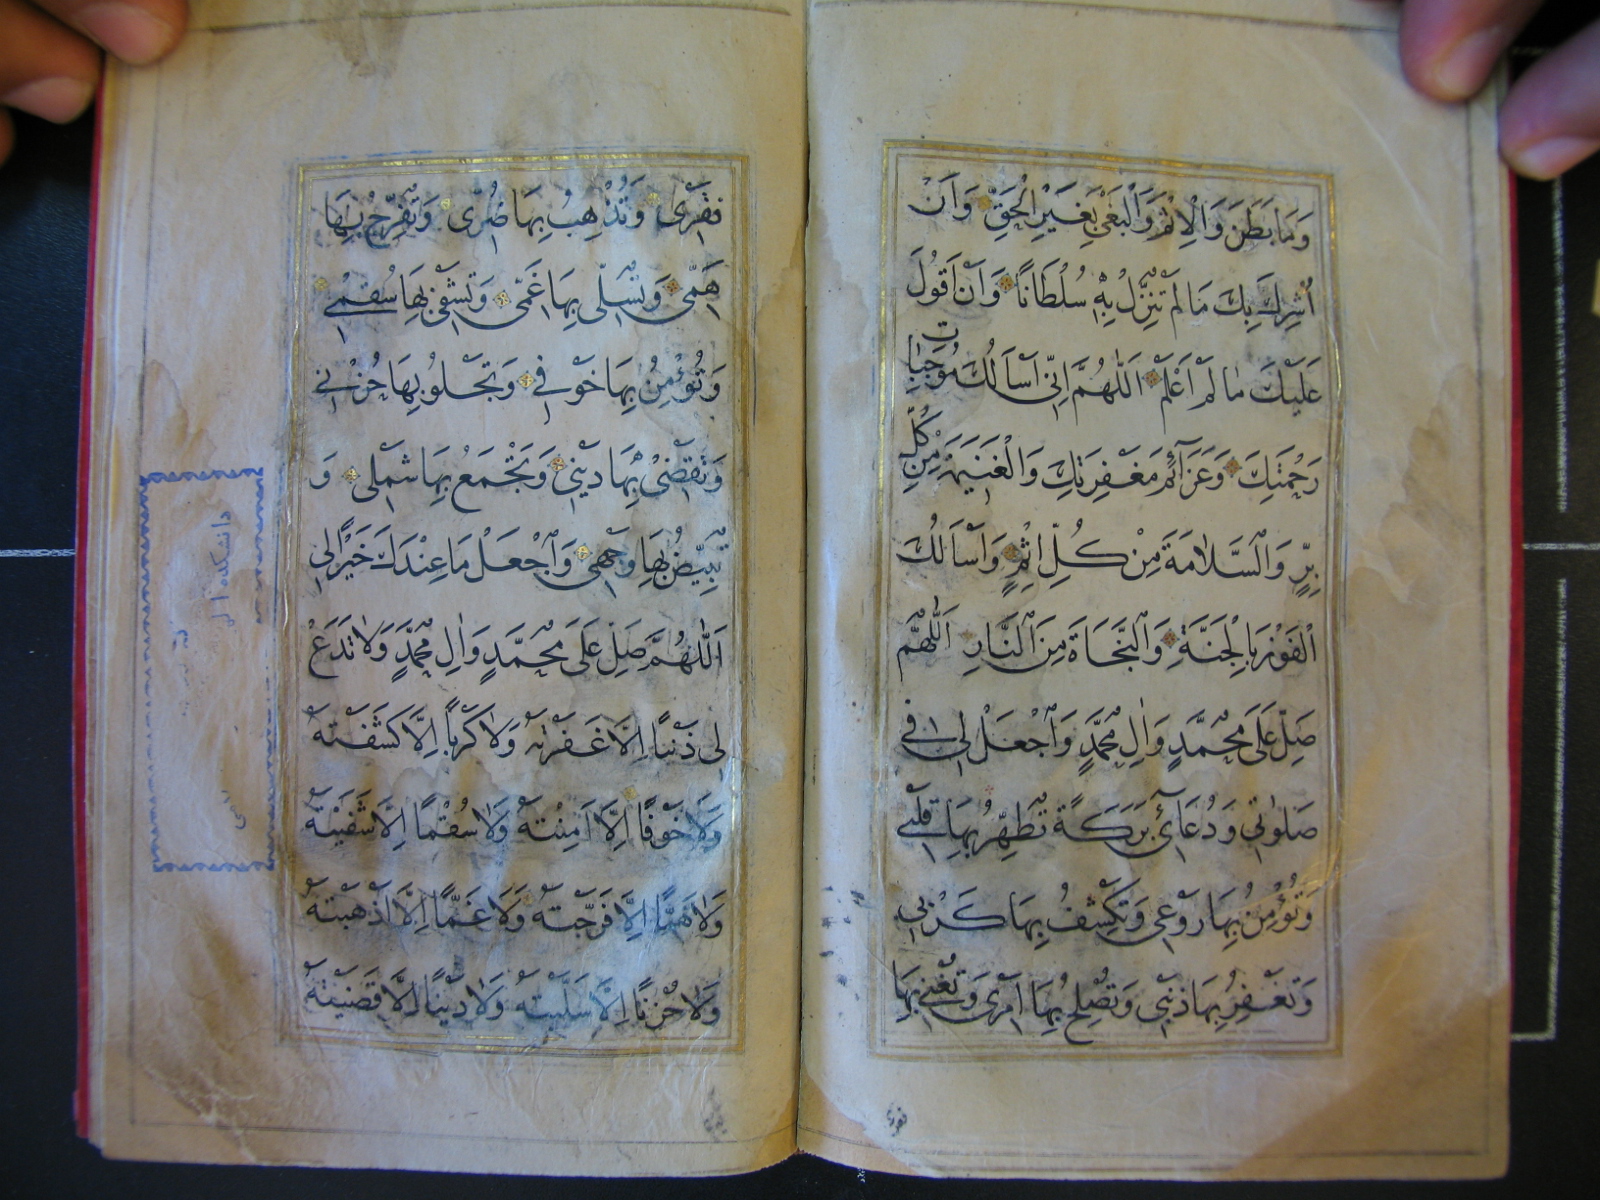 وَمَا بَطَنَ وَالْاِثْمَ وَالْبَغْیَ بِغَیْرِ الْحَقِّ وَاَنْ
اُشْرِكَ بِكَ مَا لَمْ تُنَزِّلْ بِهٖ سُلْطَانًا وَاَنْ اَقُولَ
عَلَیْكَ مَا لَمْ اَعْلَمْ اَللّٰهُمَّ اِنّٖی اَسْاَلُكَ مُوجِبَاتِ
رَحْمَتِكَ وَعَزَآئِمَ مَغْفِرَتِكَ وَالْغَنٖیمَةَ مِنْ كُلِّ
بِرٍّ وَالسَّلَامَةَ مِنْ كُلِّ اِثْمٍ وَاَسْاَلُكَ
الْفَوْزَ بِالْجَنَّةِ وَالنَّجَاةَ مِنَ النَّارِ اَللّٰهُمَّ
صَلِّ عَلَی مُحَمَّدٍ وَاٰلِ مُحَمَّدٍ وَاجْعَلْ لٖی فٖی
صَلٰوتٖی وَدُعَآئٖی بَرَكَةً تُطَهِّرُ بِهَا قَلْبٖی
وَتُؤْمِنُ بِهَا رَوْعَتٖی وَتَكْشِفُ بِهَا كَرْبٖی
وَتَغْفِرُ بِهَا ذَنْبٖی وَتُصْلِحُ بِهَا اَمْرٖی وَتُغْنٖی بِهَا
فقری
فَقْرٖی وَتُذْهِبُ بِهَا ضُرّٖی وَتُفَرِّجُ بِهَا
هَمّٖی وَتُسَلّٖی بِهَا غَمّٖی وَتَشْفٖی بِهَا سُقْمٖی
وَتُؤْمِنُ بِهَا خَوْفٖی وَتَجْلُو بِهَا حُزْنٖی
وَتَقْضٖی بِهَا دَیْنٖی وَتَجْمَعُ بِهَا شَمْلٖی وَ
تُبَیِّضُ بِهَا وَجْهٖی وَاجْعَلْ مَا عِنْدَكَ خَیْرًا لٖی
اَللّٰهُمَّ صَلِّ عَلَی مُحَمَّدٍ وَاٰلِ مُحَمَّدٍ وَلَا تَدَعْ
لٖی ذَنْبًا اِلَّا غَفَرْتَهُ وَلَا كَرْبًا اِلَّا كَشَفْتَهُ
وَلَا خَوْفًا اِلَّا اٰمَنْتَهُ وَلَا سُقْمًا اِلَّا شَفَیْتَهُ
وَلَا هَمًّا اِلَّا فَرَّجْتَهُ وَلَا غَمًّا اِلَّا اَذْهَبْتَهُ
وَلَا حُزْنًا اِلَّا سَلَّیْتَهُ وَلَا دَیْنًا اِلَّا قَضَیْتَهُ
دانشکده